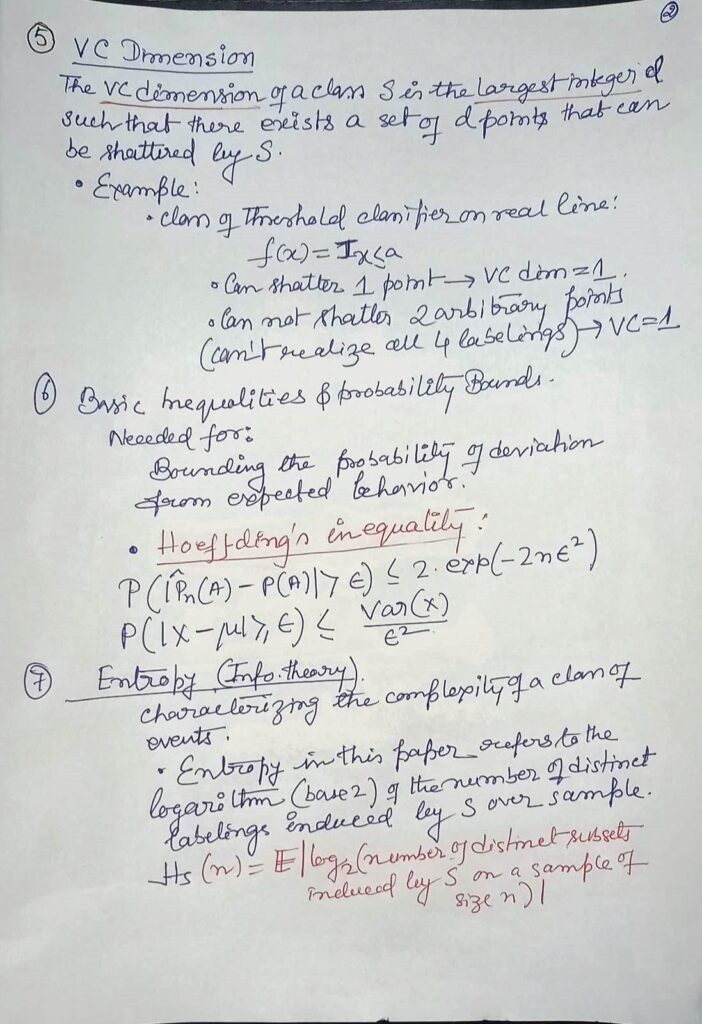 ②
⑤ VC Dimension
The VC dimension of a class S is the largest integer d
such that there exists a set of d points that can
be shattered by S.
• Example:
• class of Threshold classifier on real line:
f(x) = I x≤a
• Can shatter 1 point → VC dim = 1.
• Can not shatter 2 arbitrary points
(can't realize all 4 labelings) → VC=1
⑥ Basic Inequalities & probability Bounds.
Neeeded for:
Bounding the probability of deviation
from expected behavior.
• Hoeffding's inequality:
P(|P̂n(A) - P(A)| > ε) ≤ 2. exp(-2nε²)
P(|X-μ| ≥ ε) ≤ Var(X)
ε²
⑦ Entropy (Info. theory).
characterizing the complexity of a class of
events.
• Entropy in this paper refers to the
logarithm (base 2) of the number of distinct
labelings induced by S over sample.
Hs (n) = E|log₂(number of distinct subsets
induced by S on a sample of
size n)|